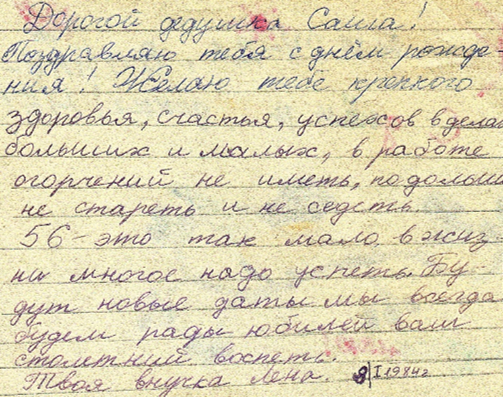 Дорогой дедушка Саша!
Поздравляю тебя с днём рожде-
ния! Желаю тебе крепкого
здоровья, счастья, успехов в делах
больших и малых, в работе
огорчений не иметь, подольше
не стареть и не седеть.
56 - это так мало, в жиз-
ни многое надо успеть. Бу-
дут новые даты мы всегда
будем рады юбилей ваш
столетний воспеть.
Твоя внучка Лена. 9/I 1984 г